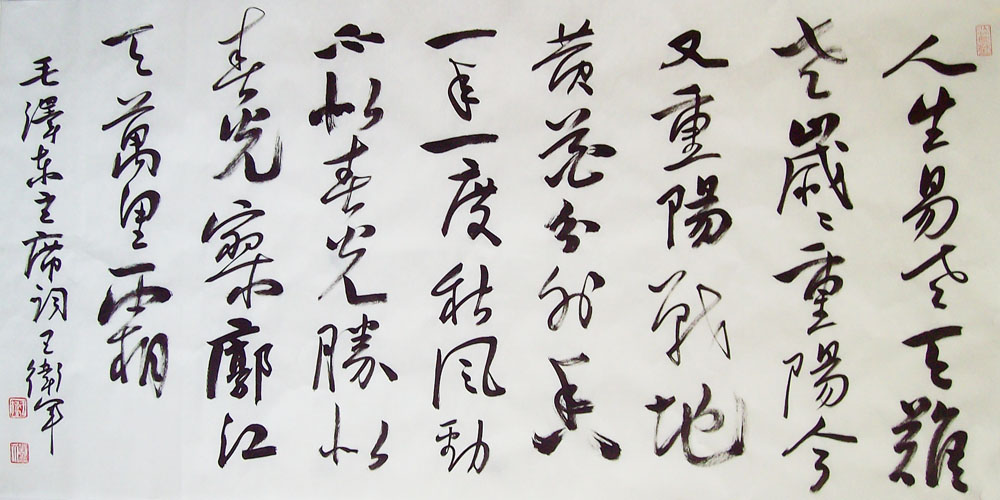 人生易老天難
老歲〻重陽今
又重陽戰地
黄花分外香
一年一度秋風勁
不似春光勝似
春光寥廓江
天萬里霜
毛澤東主席詞王衛軍